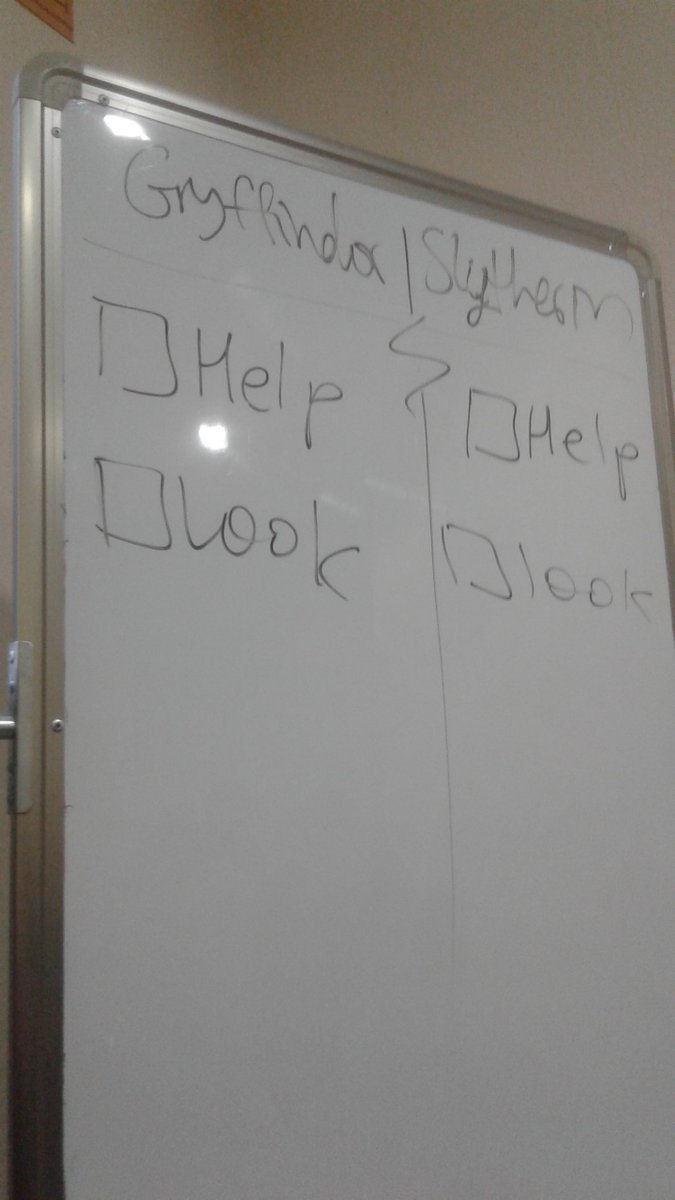 Gryffindor | Slytherin
☐ Help
☐ look
☐ Help
☐ look